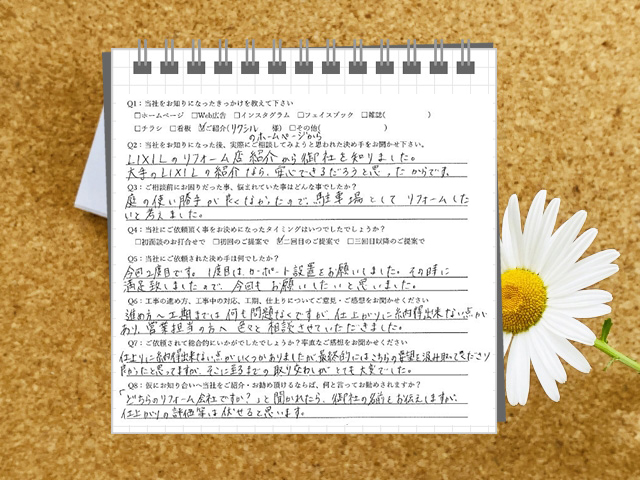 Q1：当社をお知りになったきっかけを教えて下さい
□ホームページ □Web広告 □インスタグラム □フェイスブック □雑誌( )
□チラシ □看板 ☑ご紹介(リクシル 様) □その他( )
のホームページから
Q2：当社をお知りになった後、実際にご相談してみようと思われた決め手をお聞かせ下さい。
LIXILのリフォーム店紹介から御社を知りました。
大手のLIXILの紹介なら、安心できるだろうと思ったからです。
Q3：ご相談前にお困りだった事、悩まれていた事はどんな事でしたか？
庭の使い勝手が良くなかったので、駐車場としてリフォームした
いと考えました。
Q4：当社にご依頼頂く事をお決めになったタイミングはいつでしたでしょうか？
□初面談のお打合せで □初回のご提案で ☑二回目のご提案で □三回目以降のご提案で
Q5：当社にご依頼された決め手は何でしたか？
今回2度目です。1度目はカーポート設置をお願いしました。その時に
満足致しましたので、今回もお願いしたいと思いました。
Q6：工事の進め方、工事中の対応、工期、仕上りについてご意見・ご感想をお聞かせください
進め方、工期までは何も問題なくですが、仕上がりに納得出来ない点が
あり、営業担当の方へ色々と相談させていただきました。
Q7：ご依頼されて総合的にいかがでしたでしょうか？率直なご感想をお聞かせください
仕上りに納得出来ない点がいくつかありましたが、最終的にはこちらの要望を汲み取って下さり
良かったと思ってますが、そこに至るまでの取り交わしがとても大変でした。
Q8：仮にお知り合いへ当社をご紹介・お勧め頂けるならば、何と言ってお勧めされますか？
「どちらのリフォーム会社ですか？」と聞かれたら、御社の名前もお伝えしますが、
仕上がりの評価等は伏せると思います。